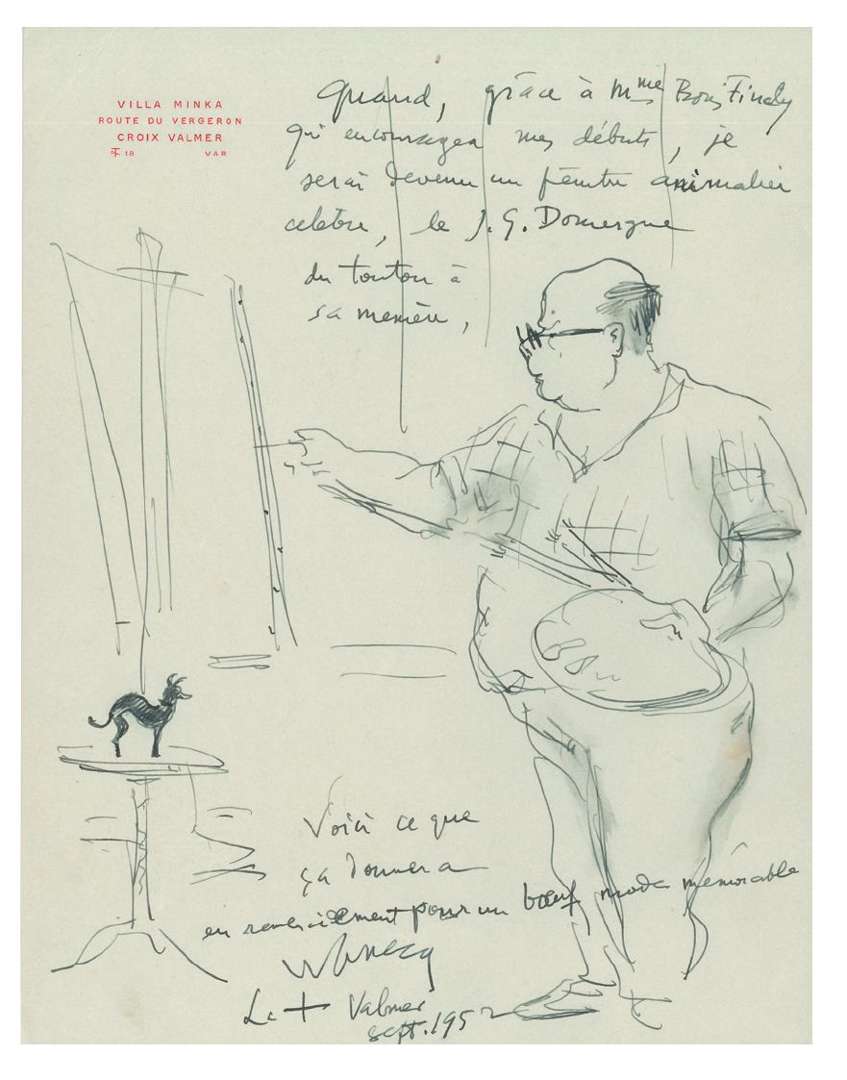 VILLA MINKA
ROUTE DU VERGERON
CROIX VALMER
T 18 VAR
Quand, grâce à Mme Boris Finaly
qui encouragea mes débuts, je
serai devenu un peintre animalier
celebre, le J.G. Domergue
du toutou à
sa memère,
Voici ce que
ça donnera
en remerciement pour un bœuf mode mémorable
La + Valmer
sept. 1952